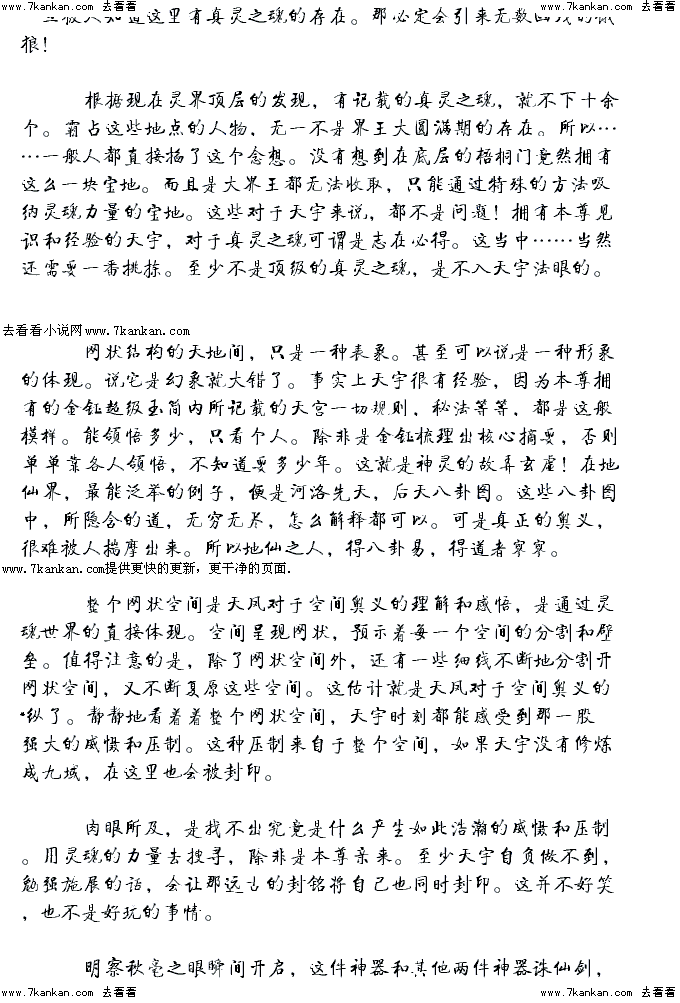 www.7kankan.com 去看看 www.7kankan.com 去看看 www.7kankan.com 去看看 www.7kankan.com 去看看
旦被人知道这里有真灵之魂的存在。那必定会引来无数凶残的饿
狼！
根据现在灵界顶层的发现，有记载的真灵之魂，就不下十余
个。霸占这些地点的人物，无一不是界王大圆满期的存在。所以…
…一般人都直接掐了这个念想。没有想到在底层的梧桐门竟然拥有
这么一块宝地。而且是大界王都无法收取，只能通过特殊的方法吸
纳灵魂力量的宝地。这些对于天宇来说，都不是问题！拥有本尊见
识和经验的天宇，对于真灵之魂可谓是志在必得。这当中……当然
还需要一番挑拣。至少不是顶级的真灵之魂，是不入天宇法眼的。
去看看小说网www.7kankan.com
网状结构的天地间，只是一种表象。甚至可以说是一种形象
的体现。说它是幻象就大错了。事实上天宇很有经验，因为本尊拥
有的金钰超级玉简内所记载的天宫一切规则，秘法等等，都是这般
模样。能领悟多少，只看个人。除非是金钰梳理出核心摘要，否则
单单靠各人领悟，不知道要多少年。这就是神灵的故弄玄虚！在地
仙界，最能泛举的例子，便是河洛先天，后天八卦图。这些八卦图
中，所隐含的道，无穷无尽，怎么解释都可以。可是真正的奥义，
很难被人揣摩出来。所以地仙之人，得八卦易，得道者寥寥。
www.7kankan.com提供更快的更新，更干净的页面.
整个网状空间是天凤对于空间奥义的理解和感悟，是通过灵
魂世界的直接体现。空间呈现网状，预示着每一个空间的分割和壁
垒。值得注意的是，除了网状空间外，还有一些细线不断地分割开
网状空间，又不断复原这些空间。这估计就是天凤对于空间奥义的
纵了。静静地看着着整个网状空间，天宇时刻都能感受到那一股
强大的威慑和压制。这种压制来自于整个空间，如果天宇没有修炼
成九域，在这里也会被封印。
肉眼所及，是找不出究竟是什么产生如此浩瀚的威慑和压制
。用灵魂的力量去搜寻，除非是本尊亲来。至少天宇自负做不到，
勉强施展的话，会让那远古的封铭将自己也同时封印。这并不好笑
，也不是好玩的事情。
明察秋毫之眼瞬间开启，这件神器和其他两件神器诛仙剑，
www.7kankan.com 去看看 www.7kankan.com 去看看 www.7kankan.com 去看看 www.7kankan.com 去看看